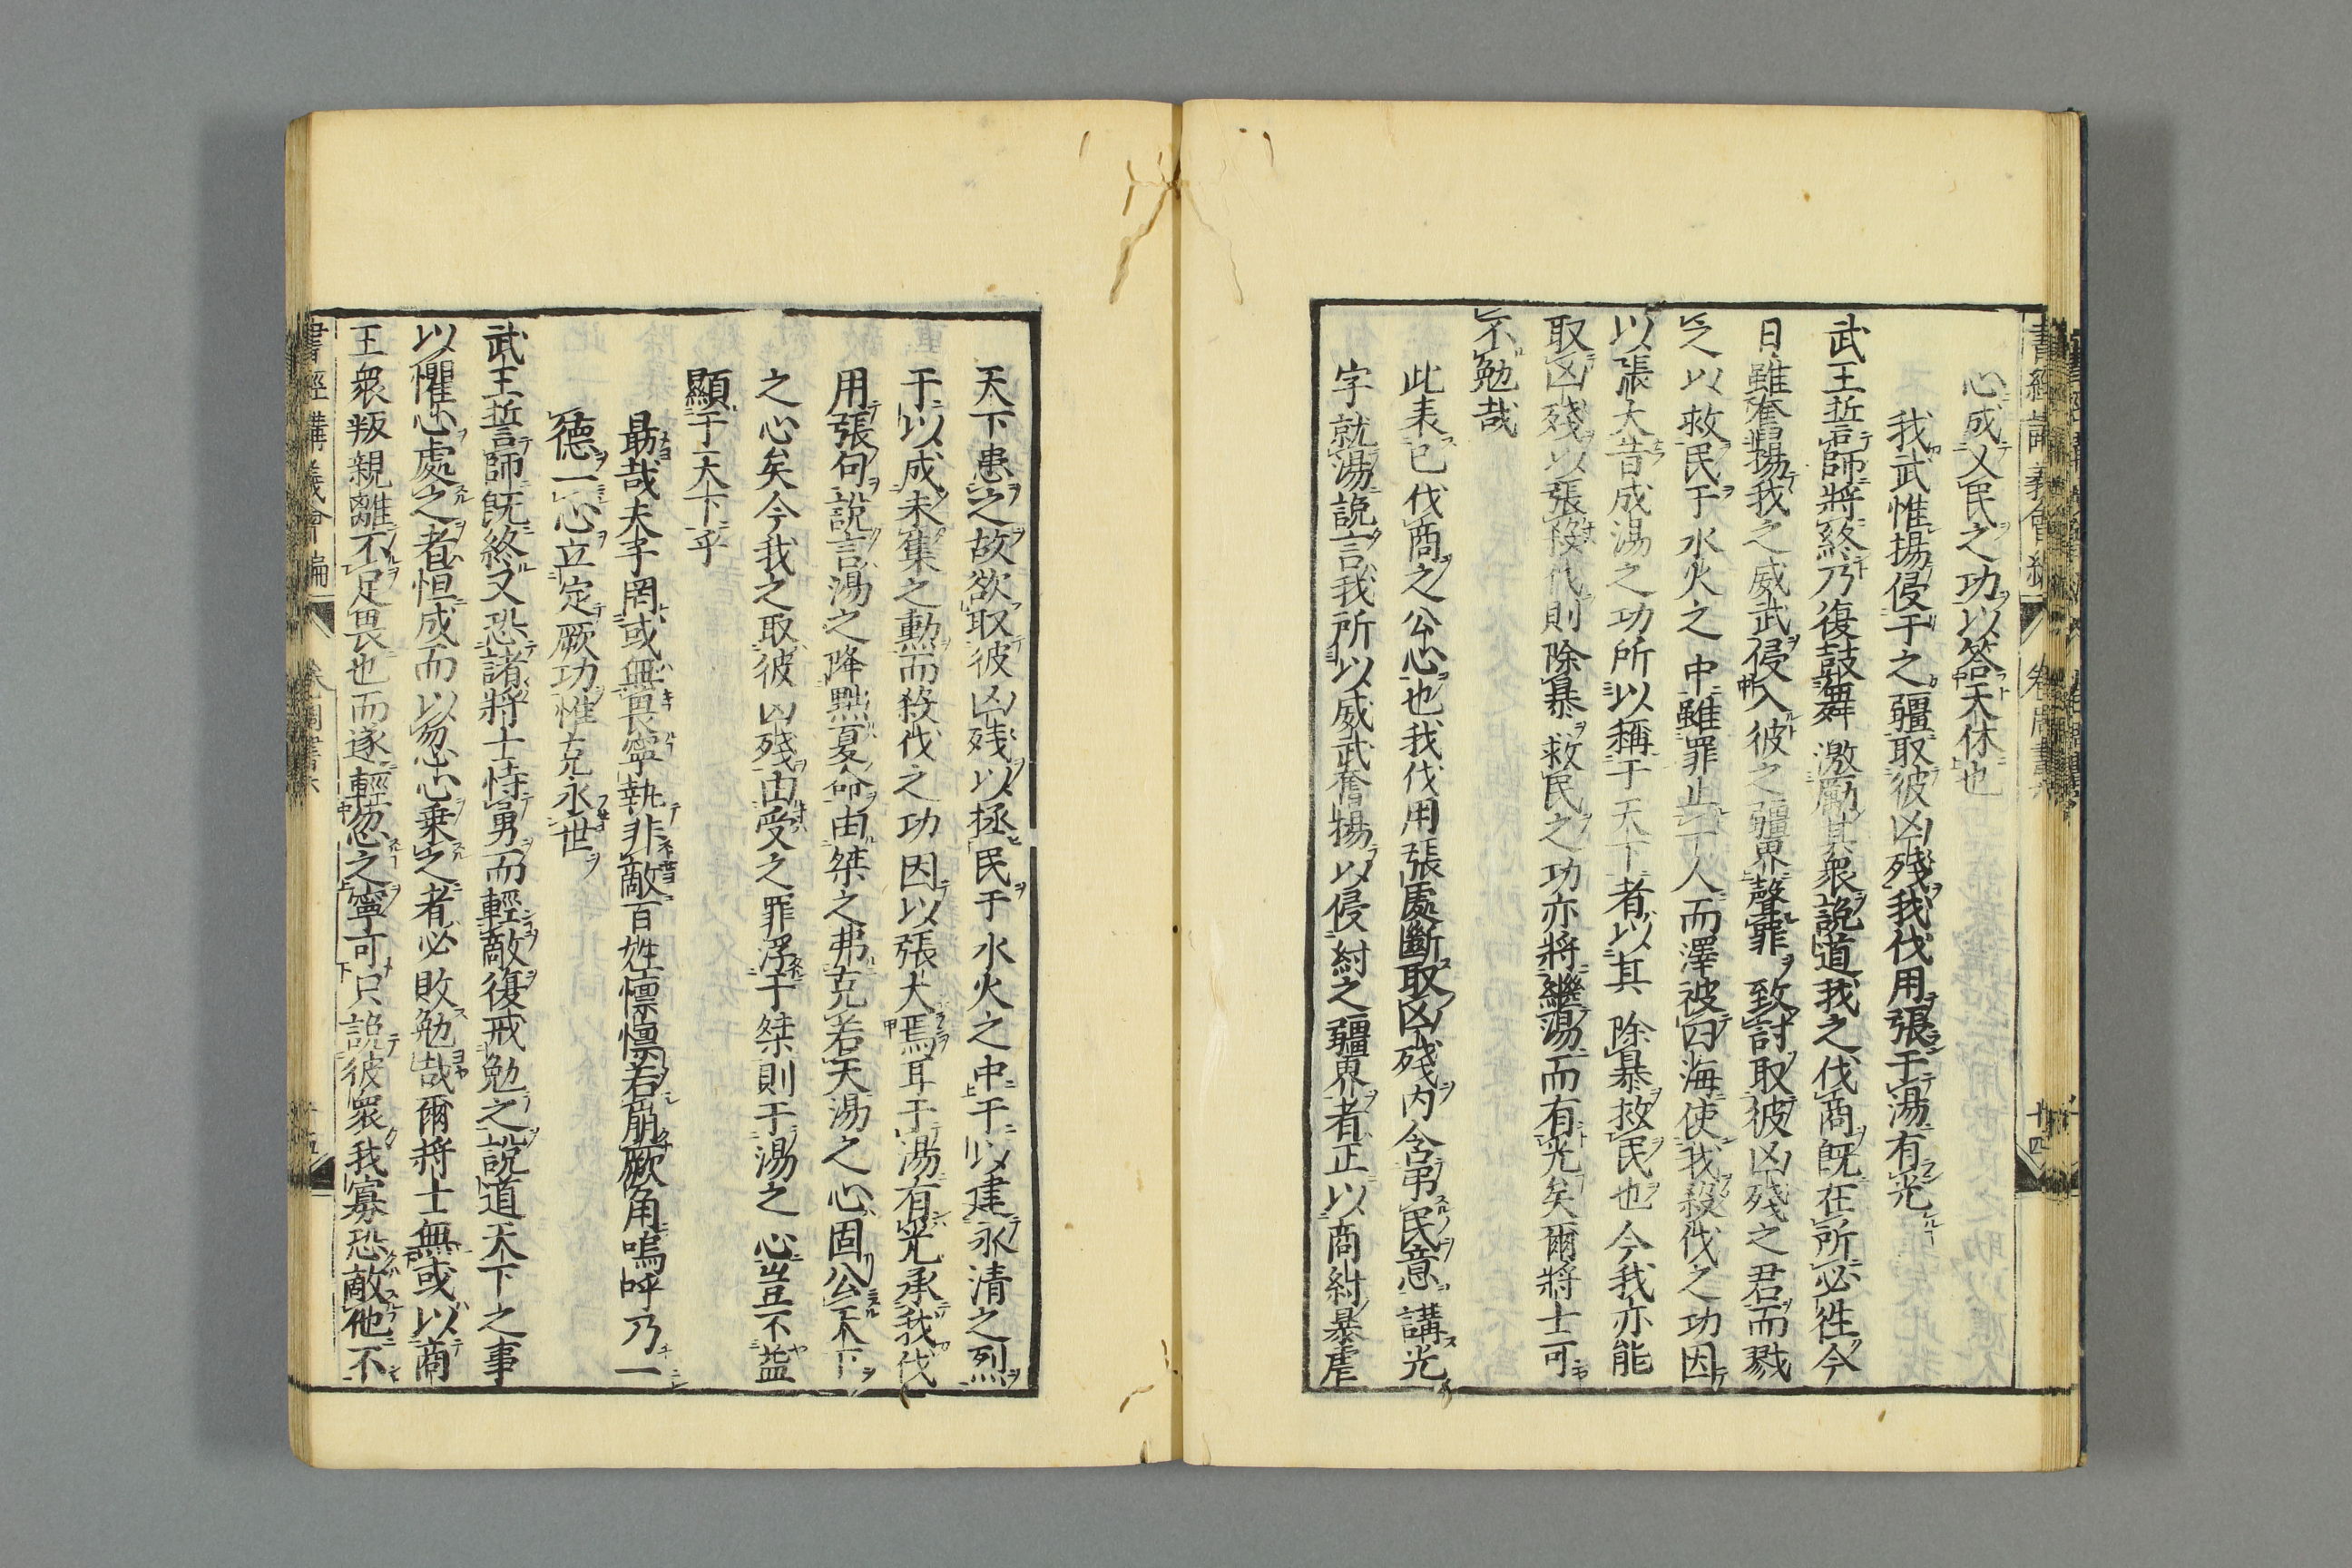 心成乂民之功以答天休也
我武惟揚侵于之疆取彼凶殘我伐用張于湯有光
武王誓師將終乃復鼓舞激勵其衆說道我之伐商旣在所必徃今
日雖奮揚我之威武侵入彼之疆界聲罪致討取彼凶殘之君而戮
之以救民于水火之中雖罪止一人而澤被四海使我殺伐之功因
以張大昔成湯之功所以稱于天下者以其除暴救民也今我亦能
取凶殘以張殺伐則除暴救民之功亦將繼湯而有光矣爾將士可
不勉哉
此表已伐商之公心也我伐用張處斷取凶殘內含弔民意講光
字就湯說言我所以威武奮揚以侵紂之疆界者正以商紂暴虐
天下患之故欲取彼凶殘以拯民于水火之中于以建永清之烈
于以成未集之勲而殺伐之功因以張大焉耳于湯有光承我伐
用張句說言湯之降黜夏命由桀之弗克若天湯之心固公天下
之心矣今我之取彼凶殘由受之罪浮于桀則于湯之心豈不益
顯于天下乎
勗哉夫子罔或無畏寧執非敵百姓懍懍若崩厥角嗚呼乃一
德一心立定厥功惟克永世
武王誓師旣終又恐諸將士恃勇而輕敵復戒勉之說道天下之事
以懼心處之者恒成而以忽心乗之者必敗勉哉爾將士無或以商
王衆叛親離不足畏也而遂輕忽之寧可只說彼衆我寡恐敵他不
書經講義會編